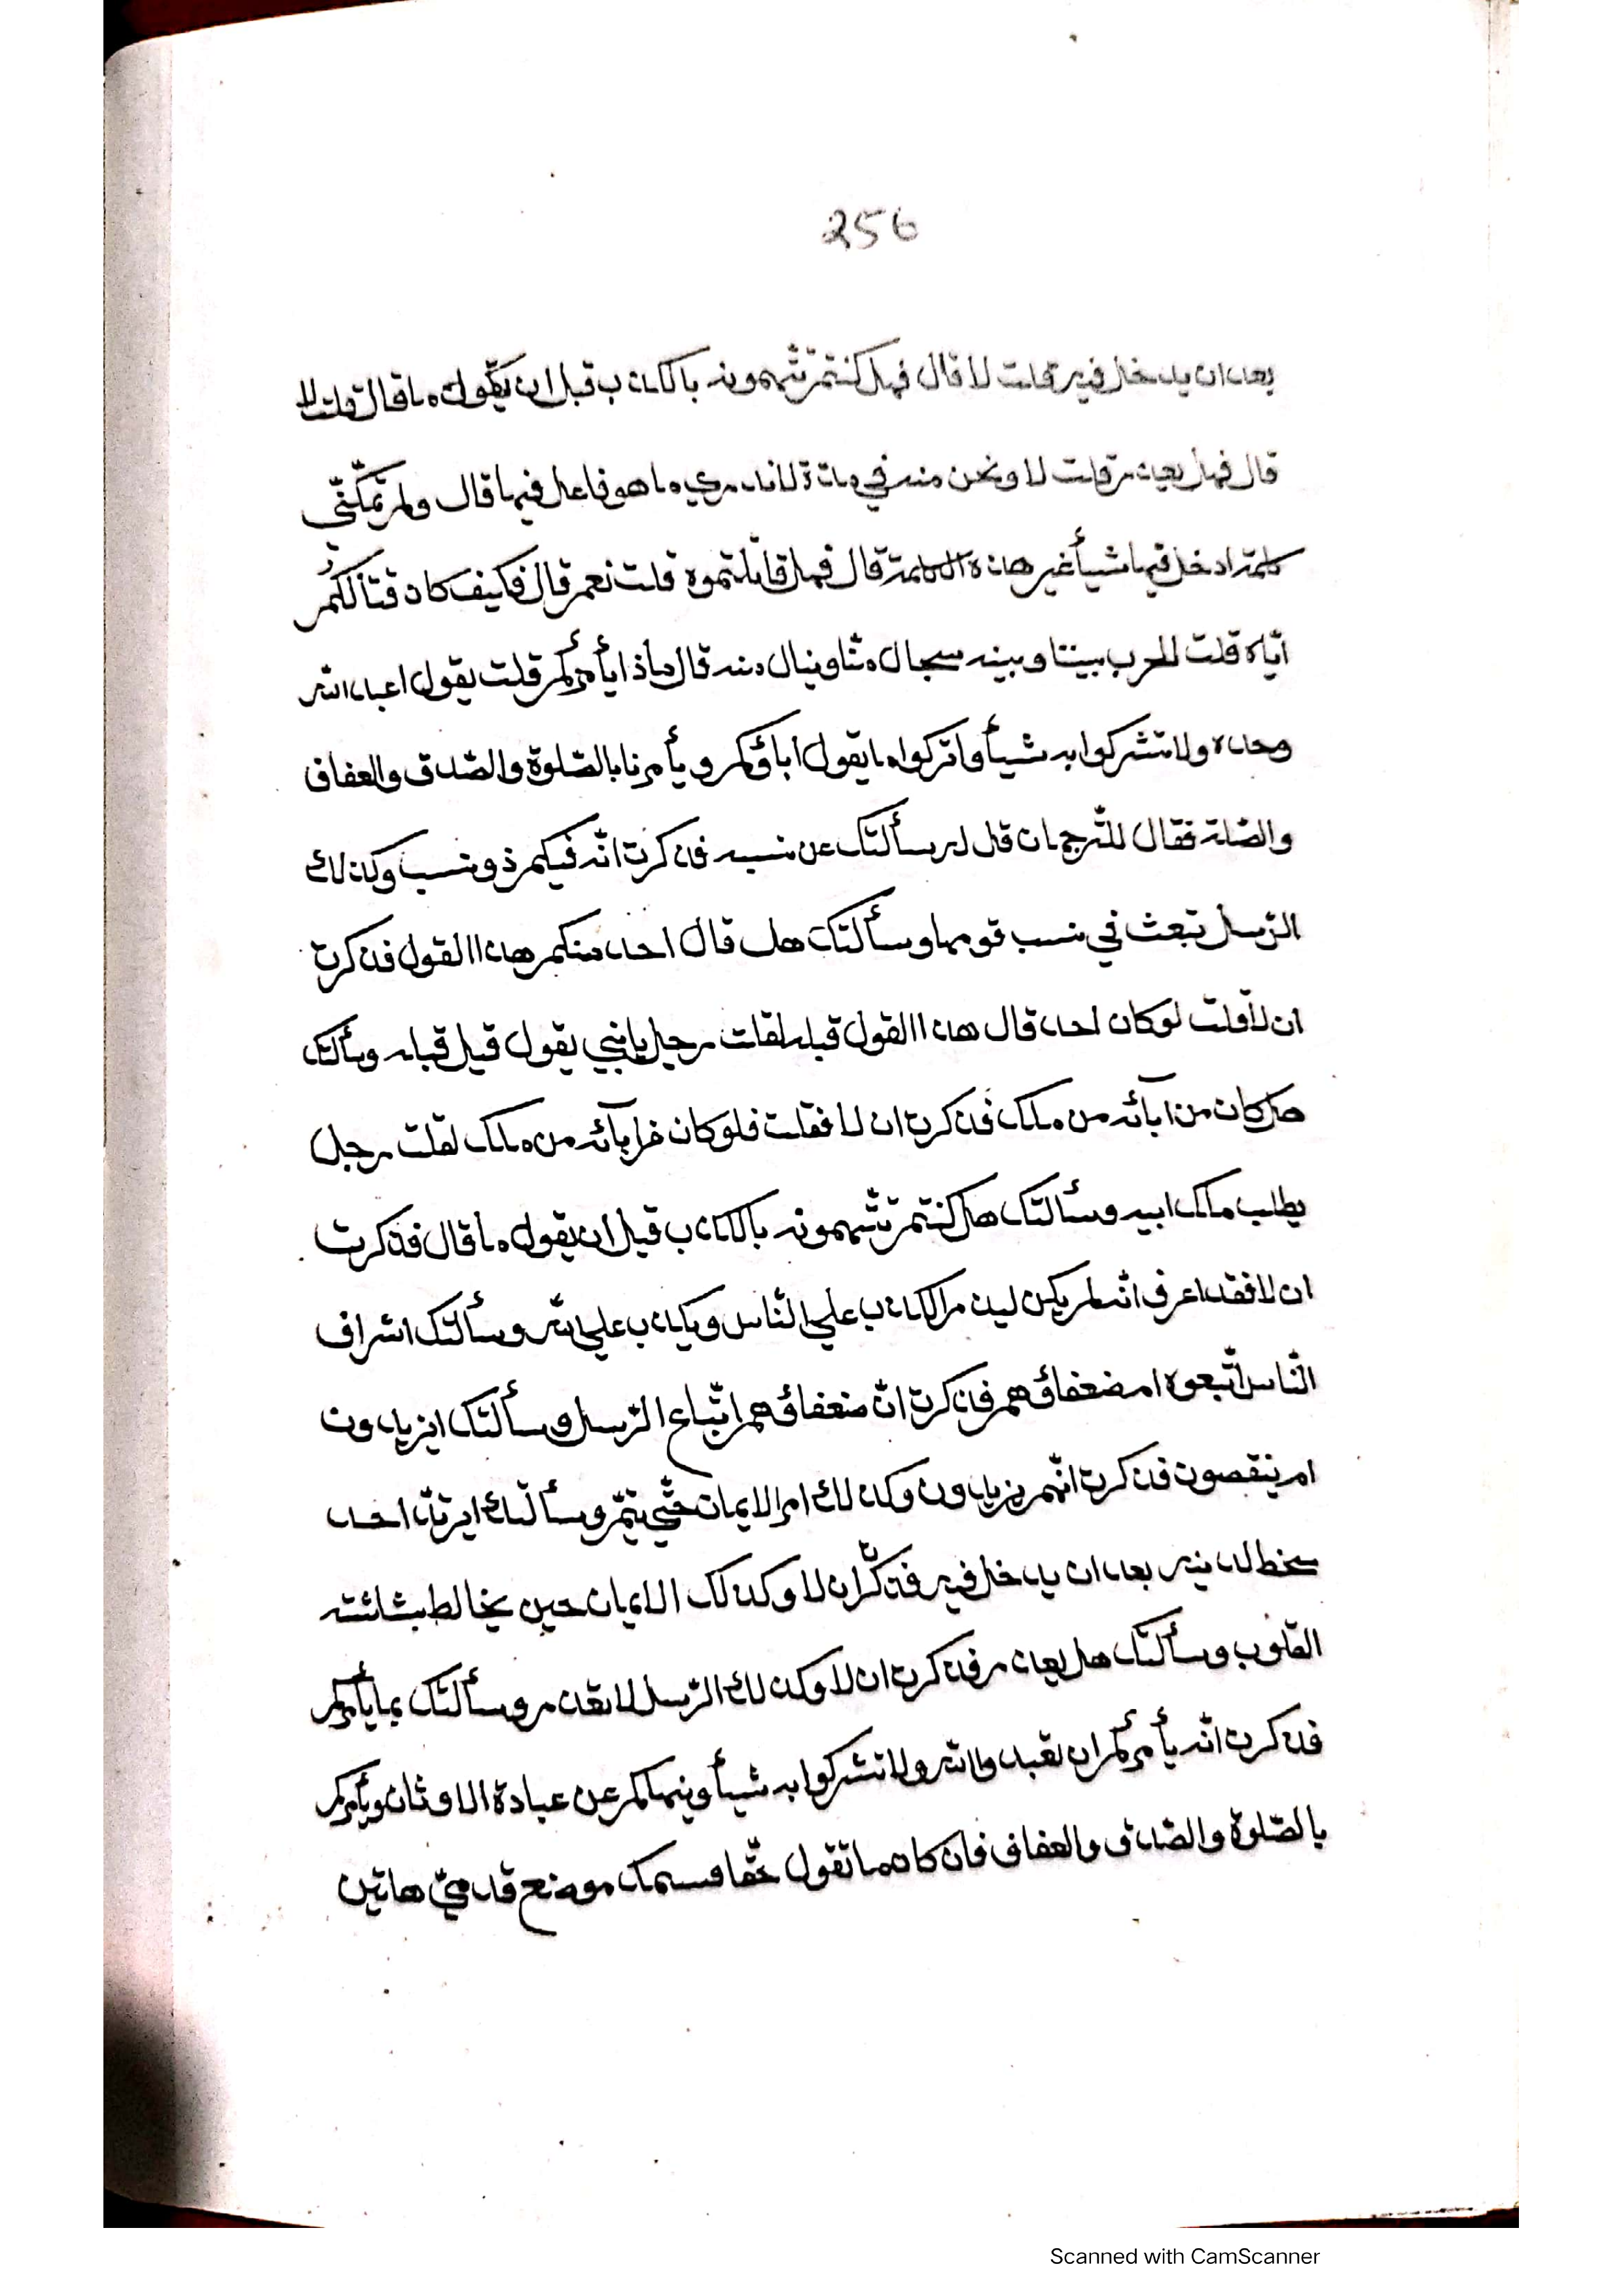 256
بعد ان يدخل فيه قلت لا قال فهل كنتم تتّهمونه بالكذب قبل ان يقول ما قال قلت لا
قال فهل يغدر قلت لا ونحن منه في مدّة لا ندري ما هو فاعل فيها قال ولم تمكّنّي
كلمة ادخل فيها شيأ غير هذه الكلمة قال فهل قاتلتموه قلت نعم قال فكيف كان قتالكم
ايّاه قلت الحرب بيننا وبينه سجال منّا وينال منه قال ماذا يأمركم قلت يقول اعبد الله
وحده ولا تشركوا به شيأ واتركوا ما يقول اباؤكم ويأمرنا بالصّلوة والصّدق والعفاف
والصّلة فقال للتّرجمان قل له سألتك عن نسبه فذكرت انّه فيكم ذو نسب وكذلك
الرّسل تبعث في نسب قومها وسألتك هل قال احد منكم هذا القول فذكرت
ان لا قلت لو كان احد قال هذا القول قبله لقلت رجل يأتسي يقول قيل قبله وسألتك
هل كان من ابآئه من ملك فذكرت ان لا فقلت فلو كان من ابآئه من ملك لقلت رجل
يطلب ملك ابيه وسألتك هل كنتم تتّهمونه بالكذب قبل ان يقول ما قال فذكرت
ان لا فقد اعرف انّه لم يكن ليذر الكذب علي النّاس ويكذب علي الله وسألتك اشراف
النّاس اتّبعوه ام ضعفاؤهم فذكرت انّ ضعفاؤهم اتّباع الرّسل وسألتك ايزيدون
ام ينقصون فذكرت انّهم يزيدون وكذلك امر الايمان حتّي يتمّ وسألتك ايرتدّ احد
سخط لدينه بعد ان يدخل فيه فذكّر ان لا وكذلك الايمان حين يخالط بشاشته
القلوب وسألتك هل يغدر فذكرت ان لا وكذلك الرّسل لا تغدر وسألتك بما يأمركم
فذكرت انّه يأمركم ان تعبدوا الله ولا تشركوا به شيأ وينهاكم عن عبادة الاوثان ويأمركم
بالصّلوة والصّدق والعفاف فان كان ما تقول حقّا فسيملك موضع قدميّ هاتين
Scanned with CamScanner